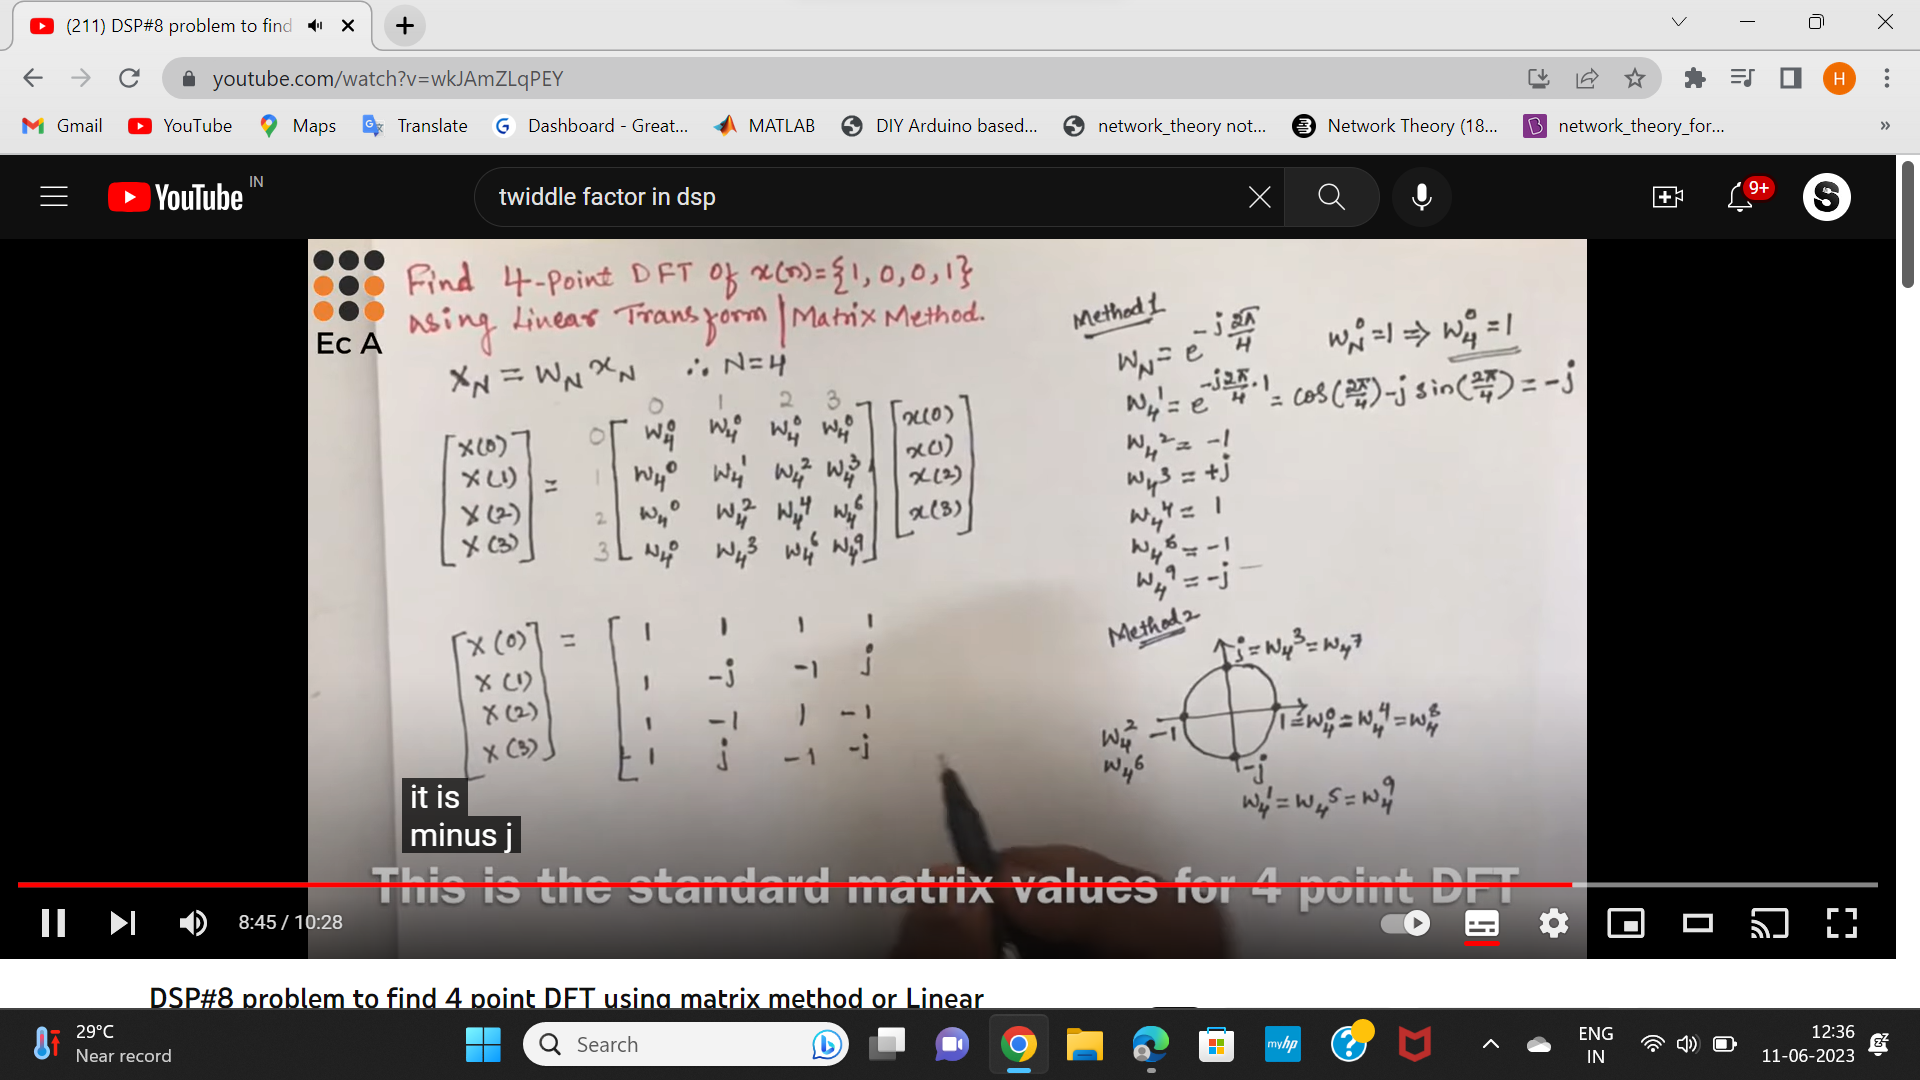 (211) DSP#8 problem to find
youtube.com/watch?v=wkJAmZLqPEY
H
Gmail YouTube Maps Translate Dashboard - Great... MATLAB DIY Arduino based... network_theory not... Network Theory (18... network_theory_for... »
YouTube IN
twiddle factor in dsp
9+
Ec A
Find 4-point DFT of x(n)={1,0,0,1}
using Linear Transform | Matrix Method.
X_N = W_N x_N ∴ N=4
0 1 2 3
[X(0)] = 0 [W₄⁰ W₄⁰ W₄⁰ W₄⁰] [x(0)]
[X(1)] 1 [W₄⁰ W₄¹ W₄² W₄³] [x(1)]
[X(2)] 2 [W₄⁰ W₄² W₄⁴ W₄⁶] [x(2)]
[X(3)] 3 [W₄⁰ W₄³ W₄⁶ W₄⁹] [x(3)]
[X(0)] = [1 1 1 1
[X(1)] 1 -j -1 j
[X(2)] 1 -1 1 -1
[X(3)] 1 j -1 -j
Method 1
W_N = e^(-j 2π/4) W_N⁰=1 ⇒ W₄⁰=1
W₄¹ = e^(-j 2π/4 ·1) = cos(2π/4)-j sin(2π/4) = -j
W₄² = -1
W₄³ = +j
W₄⁴ = 1
W₄⁶ = -1
W₄⁹ = -j
Method 2
j = W₄³ = W₄⁷
1 = W₄⁰ = W₄⁴ = W₄⁸
W₄² -1
W₄⁶
-j
W₄¹ = W₄⁵ = W₄⁹
it is
minus j
This is the standard matrix values for 4 point DFT
8:45 / 10:28
DSP#8 problem to find 4 point DFT using matrix method or Linear
29°C
Near record
Search
myhp
ENG
IN
12:36
11-06-2023